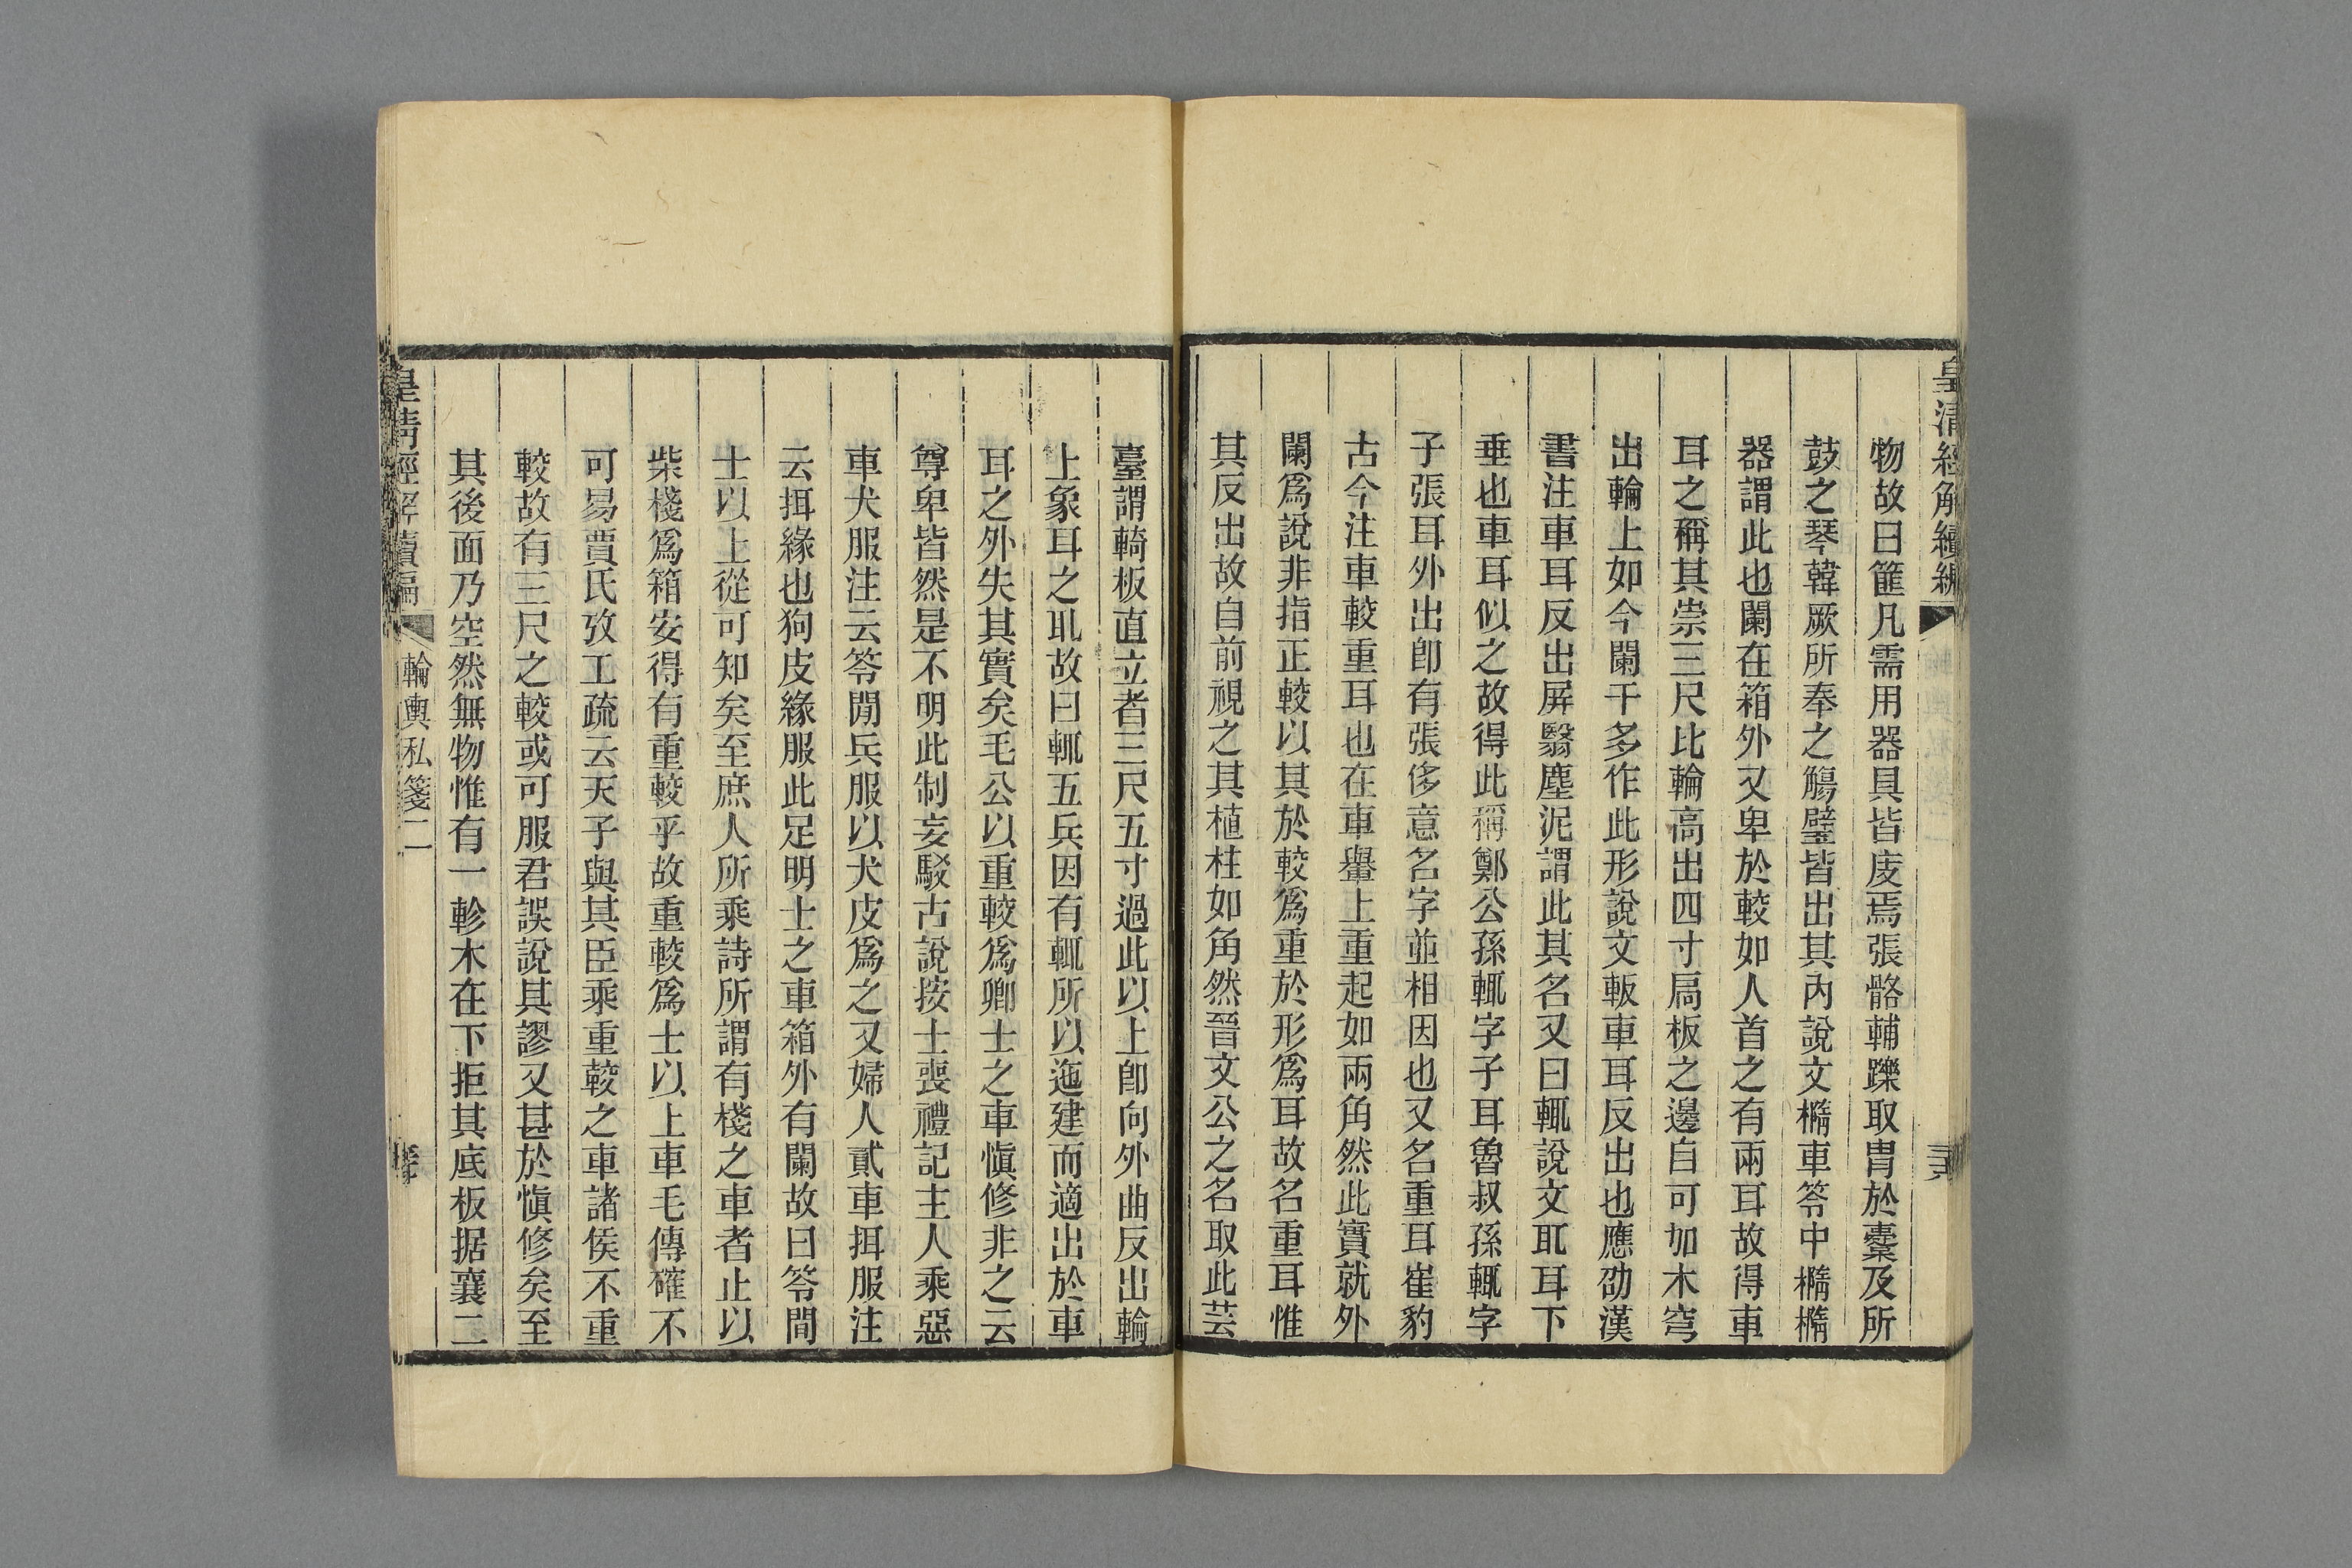 皇清經解續編
物故曰篚凡需用器具皆庋焉張骼輔躒取胄於櫜及所
鼓之琴韓厥所奉之觴璧皆出其內說文橢車笭中橢橢
器謂此也闌在箱外又卑於較如人首之有兩耳故得車
耳之稱其崇三尺比輪高出四寸扃板之邊自可加木穹
出輪上如今闌干多作此形說文軓車耳反出也應劭漢
書注車耳反出屏翳塵泥謂此其名又曰輒說文耴耳下
垂也車耳似之故得此稱鄭公孫輒字子耳魯叔孫輒字
子張耳外出卽有張侈意名字並相因也又名重耳崔豹
古今注車較重耳也在車轝上重起如兩角然此實就外
闌爲說非指正較以其於較爲重於形爲耳故名重耳惟
其反出故自前視之其植柱如角然晉文公之名取此芸
臺謂輢板直立者三尺五寸過此以上卽向外曲反出輪
上象耳之耴故曰輒五兵因有輒所以迤建而適出於車
耳之外失其實矣毛公以重較爲卿士之車愼修非之云
尊卑皆然是不明此制妄駁古說按士喪禮記主人乘惡
車犬服注云笭閒兵服以犬皮爲之又婦人貳車揖服注
云揖緣也狗皮緣服此足明士之車箱外有闌故曰笭間
士以上從可知矣至庶人所乘詩所謂有棧之車者止以
柴棧爲箱安得有重較乎故重較爲士以上車毛傳確不
可易賈氏攷工疏云天子與其臣乘重較之車諸侯不重
較故有三尺之較或可服君誤說其謬又甚於愼修矣至
其後面乃空然無物惟有一軫木在下拒其底板据襄二
皇清經解續編
輪輿私箋二